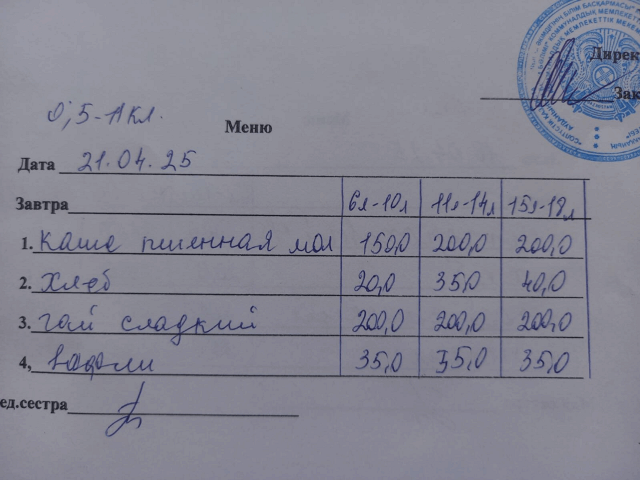 Дирек
Зак
0,5-11 кл.
Меню
Дата 21.04.25
Завтра 6л-10л 11л-14л 15л-18л
1. Каше пшенная мол 150,0 200,0 200,0
2. Хлеб 20,0 35,0 40,0
3. Чай сладкий 200,0 200,0 200,0
4, Вафли 35,0 35,0 35,0
ед.сестра